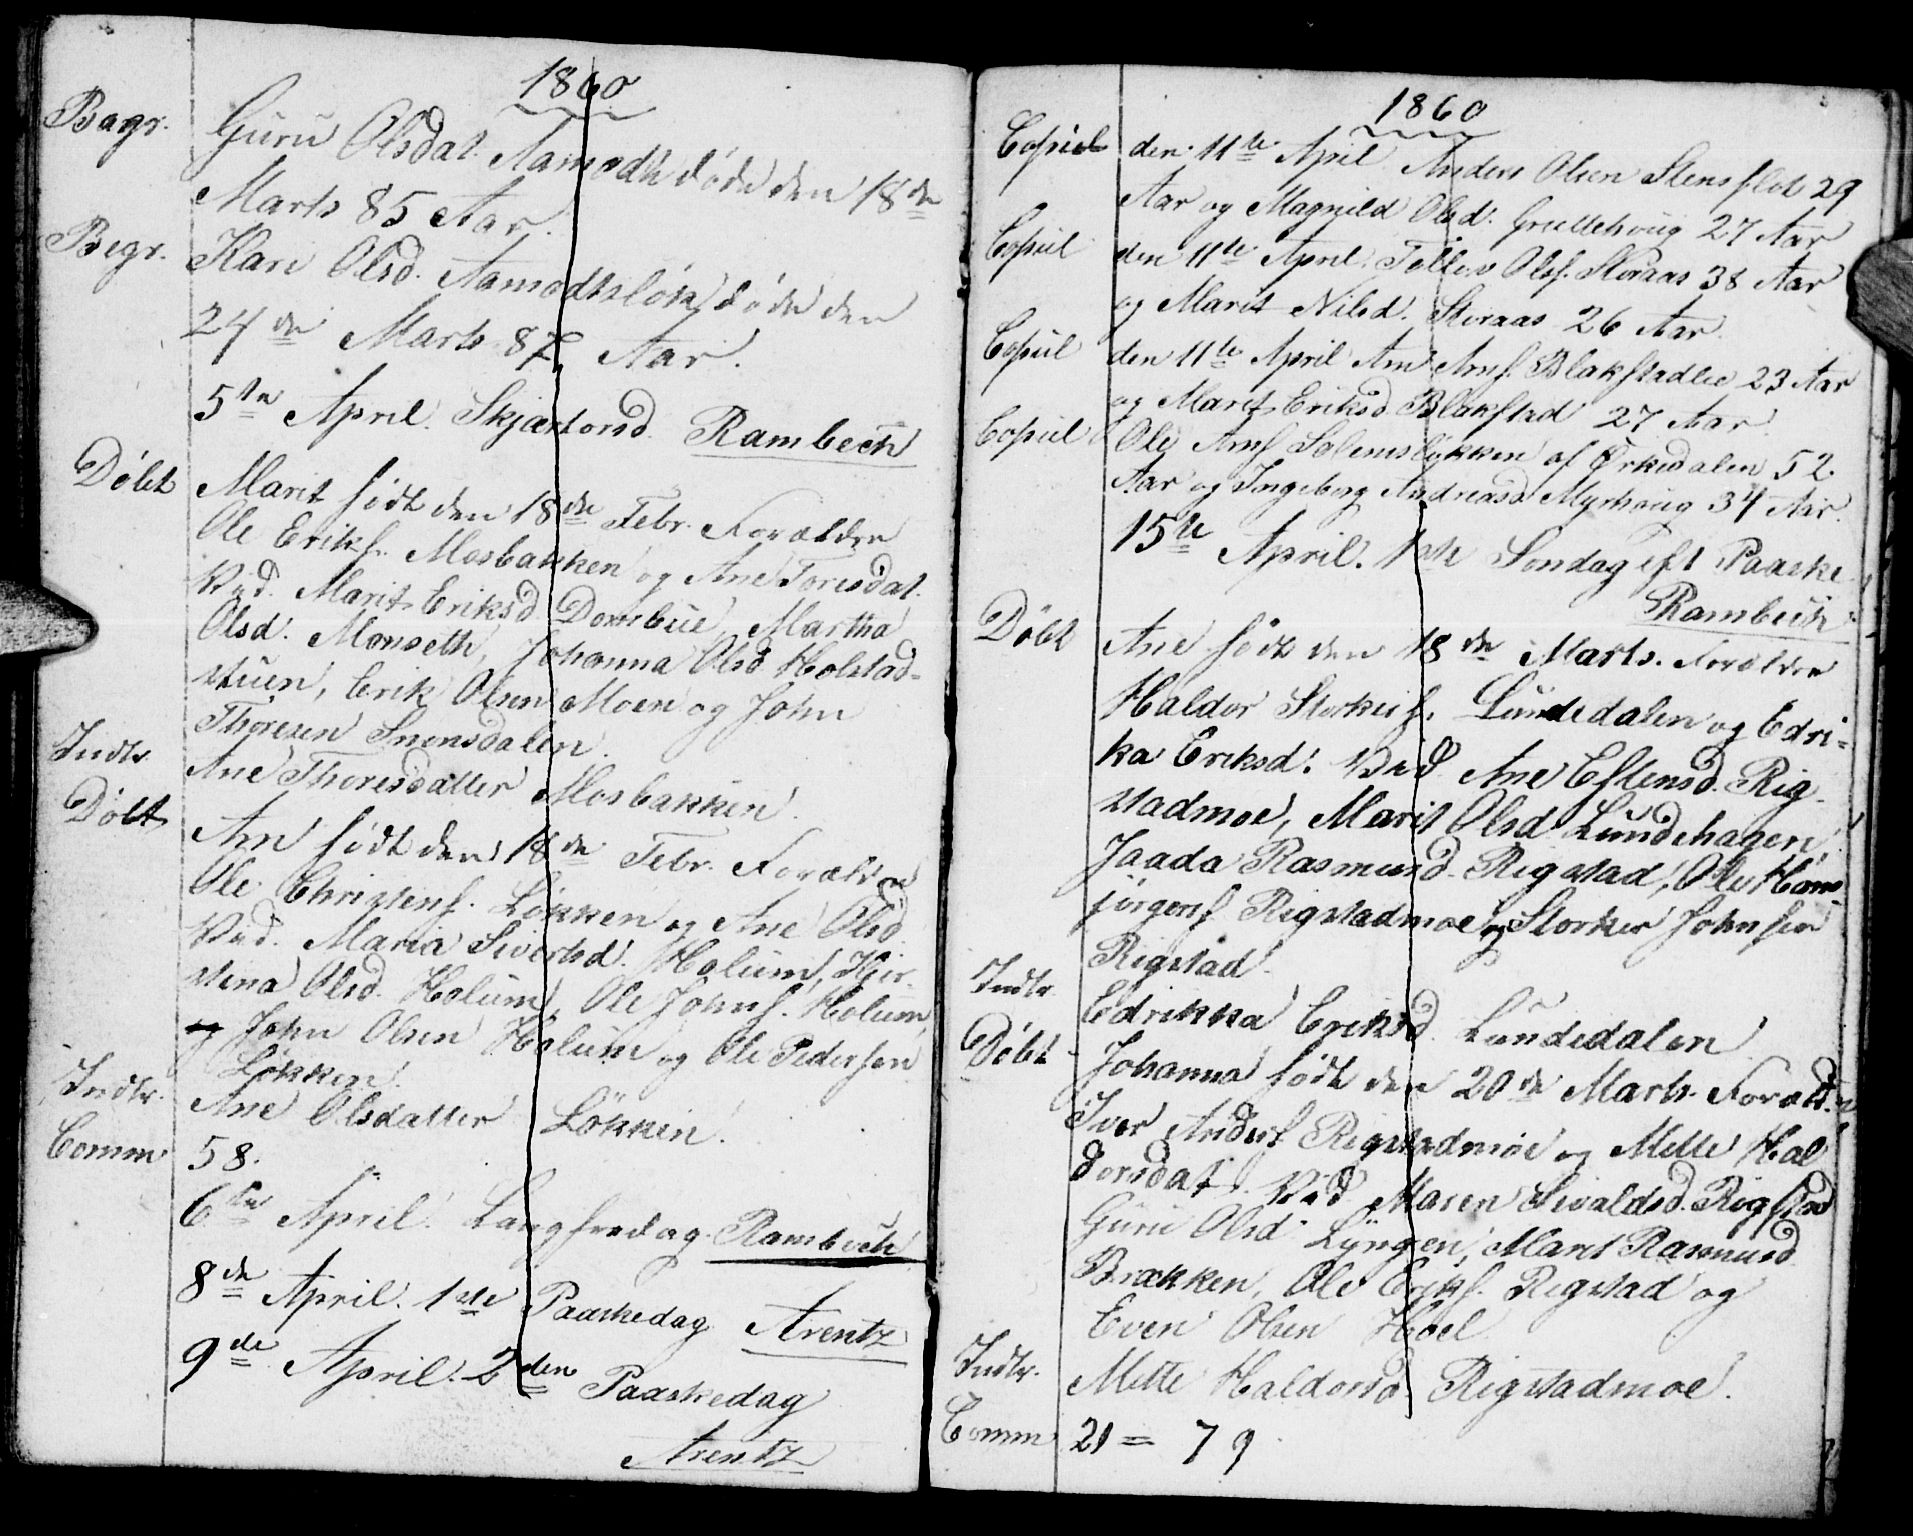 1860
Begr. Guru Olsdat. Aamodt døde den 18de
Marts 85 Aar.
Begr. Kari Olsd. Aamodtsløk døde den
24de Marts 87 Aar.
5te April. Skjærtorsd. Rambech
Døbt Marit født den 18de Febr. Forældre
Ole Eriks. Mosbakken og Ane Toresdat.
Ved. Marit Eriksd. Dombue, Martha
Olsd. Monseth, Johanna Olsd. Holstad-
stuen, Erik Olsen Moen og John
Thoresen Snensdalen.
Indtr. Ane Thoresdatter Mosbakken.
Døbt Arn født den 18de Febr. Forældre
Ole Christens. Løkken og Ane Olsd.
Ved. Maria Sivertsd. Holum, Kjir-
stina Olsd. Holum, Ole Johns. Holum
og John Olsen Holum og Ole Pedersen
Løkken.
Indtr. Ane Olsdatter Løkken.
Comm 58.
6te April. Langfredag. Rambech
8de April. 1ste Paaskedag Arentz
9de April. 2den Paaskedag
Arentz
1860
Copul den 11te April Anders Olsen Stensflot 29
Aar og Magnild Olsd. Grillehoug 27 Aar
Copul den 11te April. Tollev Ols. Storaas 38 Aar
og Marit Nilsd. Storaas 26 Aar.
Copul den 11te April Arn Arns. Blakstadlie 23 Aar
og Marit Eriksd. Blakstad 27 Aar
Copul Ole Arns. Solemsløkken af Ørkedalen 52
Aar og Ingeborg Andreasd. Myrhoug 34 Aar.
15te April. 1ste Søndag eft Paaske.
Rambech
Døbt Ane født den 18de Marts. Forældre
Haldor Storkers. Lundedalen og Edri-
ka Eriksd. Ved Ane Estensd. Rig-
stadmoe, Marit Olsd. Lundehagen,
Jaada Rasmusd. Rigstad, Ole Hans
jørgens. Rigstadmoe og Storker Johnsen
Rigstad.
Indtr. Edrikka Eriksd. Lundedalen
Døbt Johanna født den 20de Marts. Foræld.
Iver Anders. Rigstadmoe og Mette Hal
dorsdat. Ved Maren Sivaldsd. Rigstad
Guru Olsd. Lyngen, Marit Rasmusd.
Brækken, Ole Eriks. Rigstad og
Even Olsen Hoel
Indtr. Mette Haldorsd. Rigstadmoe.
Comm 21 = 79